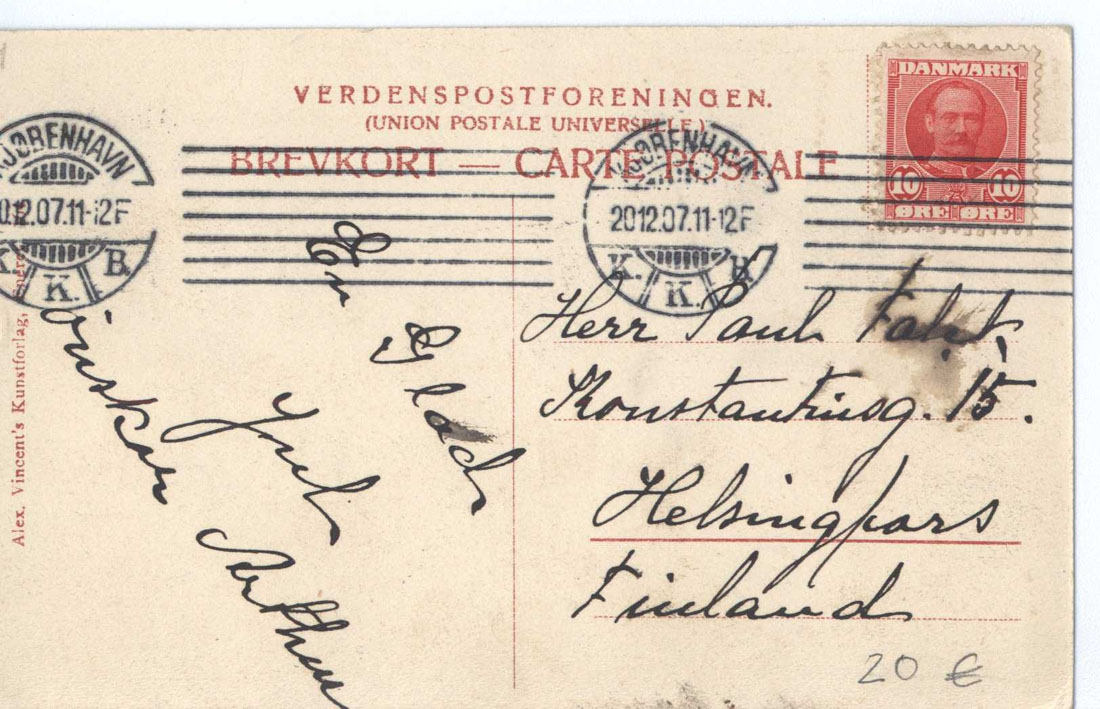 VERDENSPOSTFORENINGEN.
(UNION POSTALE UNIVERSELLE.)
BREVKORT — CARTE POSTALE
DANMARK
10 10
ØRE ØRE
KJØBENHAVN
20.12.07.11-12F
K. K. B.
KJØBENHAVN
20.12.07.11-12F
K. K. B.
Alex. Vincent's Kunstforlag,
En
Glad
Jul
önskar
Arthur
Herr Paul
Konstantinsg. 15.
Helsingfors
Finland
20 €